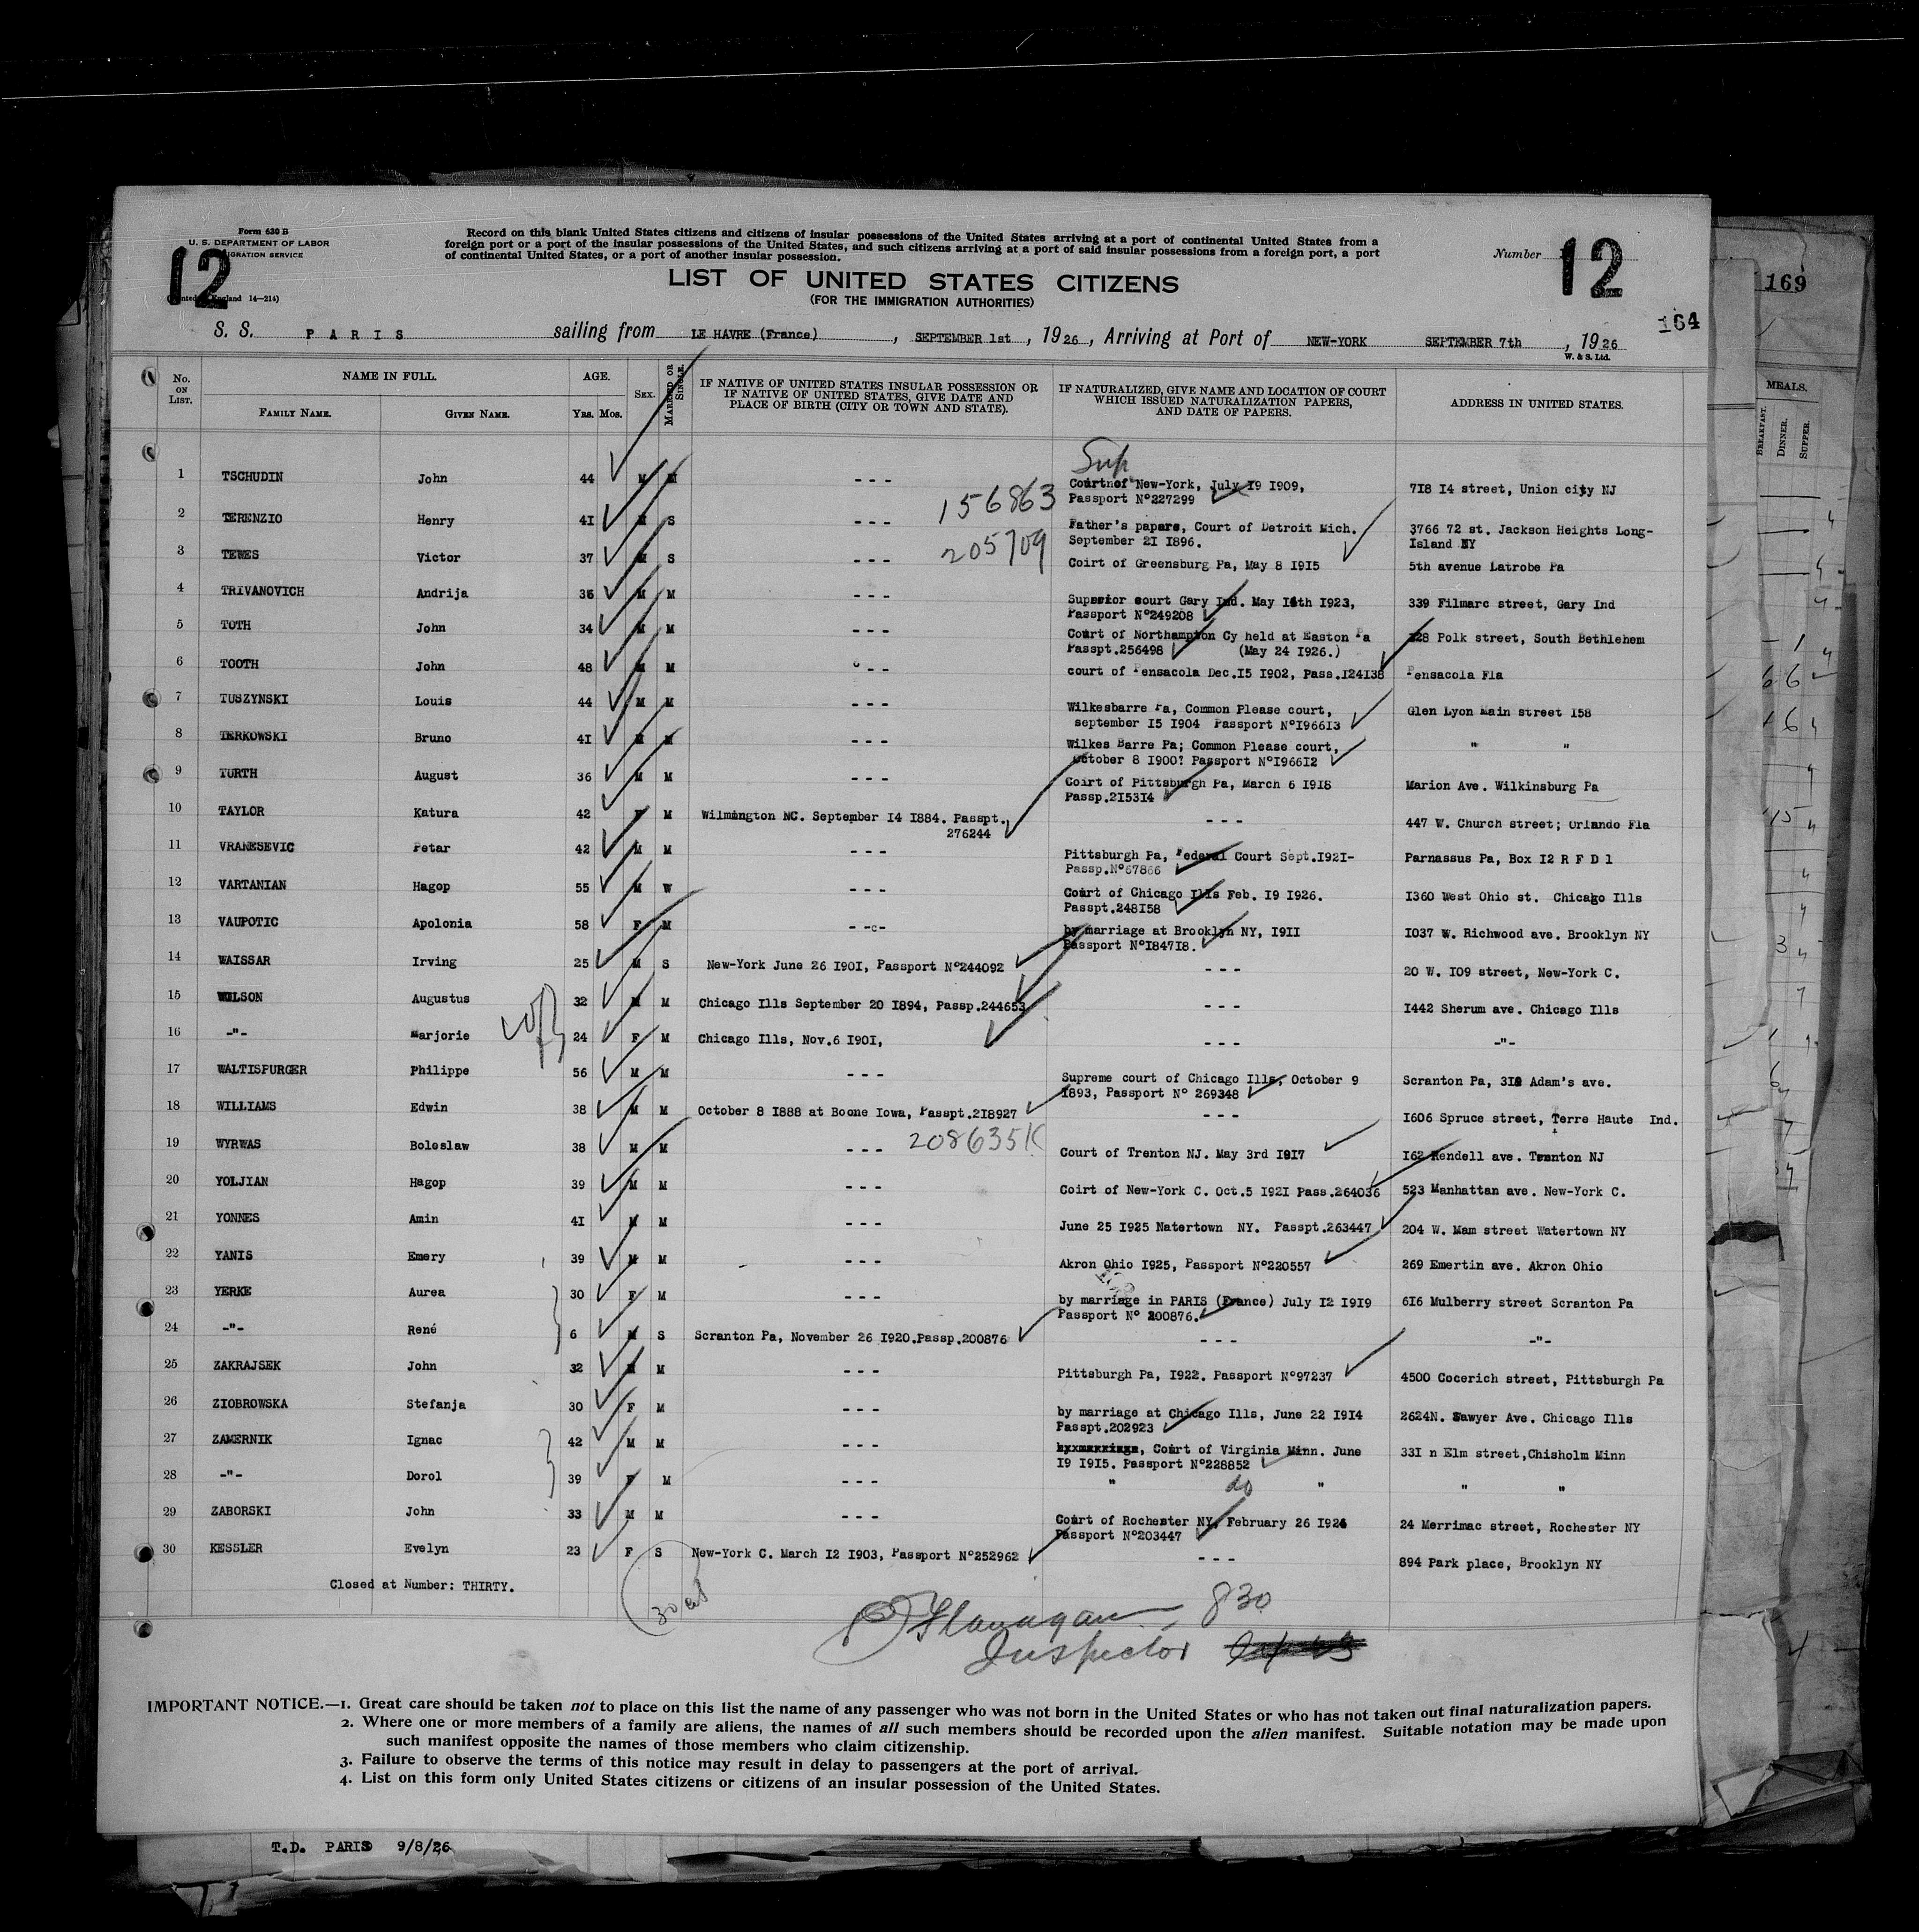 Form 630 B
U. S. DEPARTMENT OF LABOR
IGRATION SERVICE
12
England 14—214)
Record on this blank United States citizens and citizens of insular possessions of the United States arriving at a port of continental United States from a
foreign port or a port of the insular possessions of the United States, and such citizens arriving at a port of said insular possessions from a foreign port, a port
of continental United States, or a port of another insular possession.
Number 12
LIST OF UNITED STATES CITIZENS
(FOR THE IMMIGRATION AUTHORITIES)
169
164
S. S. PARIS sailing from LE HAVRE (France), SEPTEMBER 1st, 1926, Arriving at Port of NEW-YORK SEPTEMBER 7th, 1926
W. & S. Ltd.
No. ON LIST. NAME IN FULL. FAMILY NAME. GIVEN NAME. AGE. Yrs. Mos. SEX. MARRIED OR SINGLE. IF NATIVE OF UNITED STATES INSULAR POSSESSION OR IF NATIVE OF UNITED STATES, GIVE DATE AND PLACE OF BIRTH (CITY OR TOWN AND STATE). IF NATURALIZED, GIVE NAME AND LOCATION OF COURT WHICH ISSUED NATURALIZATION PAPERS, AND DATE OF PAPERS. ADDRESS IN UNITED STATES.
MEALS.
BREAKFAST. DINNER. SUPPER.
Sup
1 TSCHUDIN John 44 M M - - - Courtnof New-York, July I9 I909, 7I8 I4 street, Union city NJ
Passport N°227299
156863
2 TERENZIO Henry 4I M S - - - Father's papers, Court of Detroit Mich. 3766 72 st. Jackson Heights Long-
September 2I I896. Island NY
205709
3 TEWES Victor 37 M S - - - Coirt of Greensburg Pa, May 8 I9I5 5th avenue Latrobe Pa
4 TRIVANOVICH Andrija 36 M M - - - Superior court Gary Ind. May I4th I923, 339 Filmarc street, Gary Ind
Passport N°249208
5 TOTH John 34 M M - - - Court of Northampton Cy held at Easton Pa 728 Polk street, South Bethlehem
Passpt.256498 (May 24 I926.)
6 TOOTH John 48 M M - - court of Pensacola Dec.I5 I902, Pass.I24I38 Pensacola Fla
7 TUSZYNSKI Louis 44 M M - - - Wilkesbarre Pa, Common Please court, Glen Lyon Main street I58
september I5 I904 Passport N°I966I3
8 TERKOWSKI Bruno 4I M M - - - Wilkes Barre Pa; Common Please court, " "
October 8 I900? Passport N°I966I2
9 TURTH August 36 M M - - - Coirt of Pittsburgh Pa, March 6 I9I8 Marion Ave. Wilkinsburg Pa
Passp.2I53I4
10 TAYLOR Katura 42 F M Wilmington NC. September I4 I884. Passpt. - - - 447 W. Church street; Orlando Fla
276244
11 VRANESEVIC Petar 42 M M - - - Pittsburgh Pa, Federal Court Sept.I92I- Parnassus Pa, Box I2 R F D l
Passp.N°67866
12 VARTANIAN Hagop 55 M W - - - Court of Chicago Ills Feb. I9 I926. I360 West Ohio st. Chicago Ills
Passpt.248I58
13 VAUPOTIC Apolonia 58 F M - -c- by marriage at Brooklyn NY, I9II I037 W. Richwood ave. Brooklyn NY
Passport N°I847I8.
14 WAISSAR Irving 25 M S New-York June 26 I90I, Passport N°244092 - - - 20 W. I09 street, New-York C.
15 WILSON Augustus 32 M M Chicago Ills September 20 I894, Passp.244653 - - - I442 Sherum ave. Chicago Ills
16 -"- Marjorie 24 F M Chicago Ills, Nov.6 I90I, - - - -"-
17 WALTISPURGER Philippe 56 M M - - - Supreme court of Chicago Ills, October 9 Scranton Pa, 3I2 Adam's ave.
I893, Passport N° 269348
18 WILLIAMS Edwin 38 M M October 8 I888 at Boone Iowa, Passpt.2I8927 - - - I606 Spruce street, Terre Haute Ind.
208635K
19 WYRWAS Boleslaw 38 M M - - - Court of Trenton NJ. May 3rd I9I7 I62 Rendell ave. Trenton NJ
20 YOLJIAN Hagop 39 M M - - - Coirt of New-York C. Oct.5 I92I Pass.264036 523 Manhattan ave. New-York C.
21 YONNES Amin 4I M M - - - June 25 I925 Natertown NY. Passpt.263447 204 W. Mam street Watertown NY
22 YANIS Emery 39 M M - - - Akron Ohio I925, Passport N°220557 269 Emertin ave. Akron Ohio
23 YERKE Aurea 30 F M - - - by marriage in PARIS (France) July I2 I9I9 6I6 Mulberry street Scranton Pa
Passport N° 200876.
24 -"- René 6 M S Scranton Pa, November 26 I920.Passp.200876 - - - -"-
25 ZAKRAJSEK John 32 M M - - - Pittsburgh Pa, I922. Passport N°97237 4500 Cocerich street, Pittsburgh Pa
26 ZIOBROWSKA Stefanja 30 F M - - - by marriage at Chicago Ills, June 22 I9I4 2624N. Sawyer Ave. Chicago Ills
Passpt.202923
27 ZAMERNIK Ignac 42 M M - - - , Coirt of Virginia Minn. June 33I n Elm street,Chisholm Minn
I9 I9I5. Passport N°228852
28 -"- Dorol 39 F M - - - " do " " "
29 ZABORSKI John 33 M M - - - Court of Rochester NY, February 26 I924 24 Merrimac street, Rochester NY
Passport N°203447
30 KESSLER Evelyn 23 F S New-York C. March I2 I903, Passport N°252962 - - - 894 Park place, Brooklyn NY
Closed at Number: THIRTY.
Flanagan 830
Inspector
IMPORTANT NOTICE.—1. Great care should be taken not to place on this list the name of any passenger who was not born in the United States or who has not taken out final naturalization papers.
2. Where one or more members of a family are aliens, the names of all such members should be recorded upon the alien manifest. Suitable notation may be made upon
such manifest opposite the names of those members who claim citizenship.
3. Failure to observe the terms of this notice may result in delay to passengers at the port of arrival.
4. List on this form only United States citizens or citizens of an insular possession of the United States.
T.D. PARIS 9/8/26